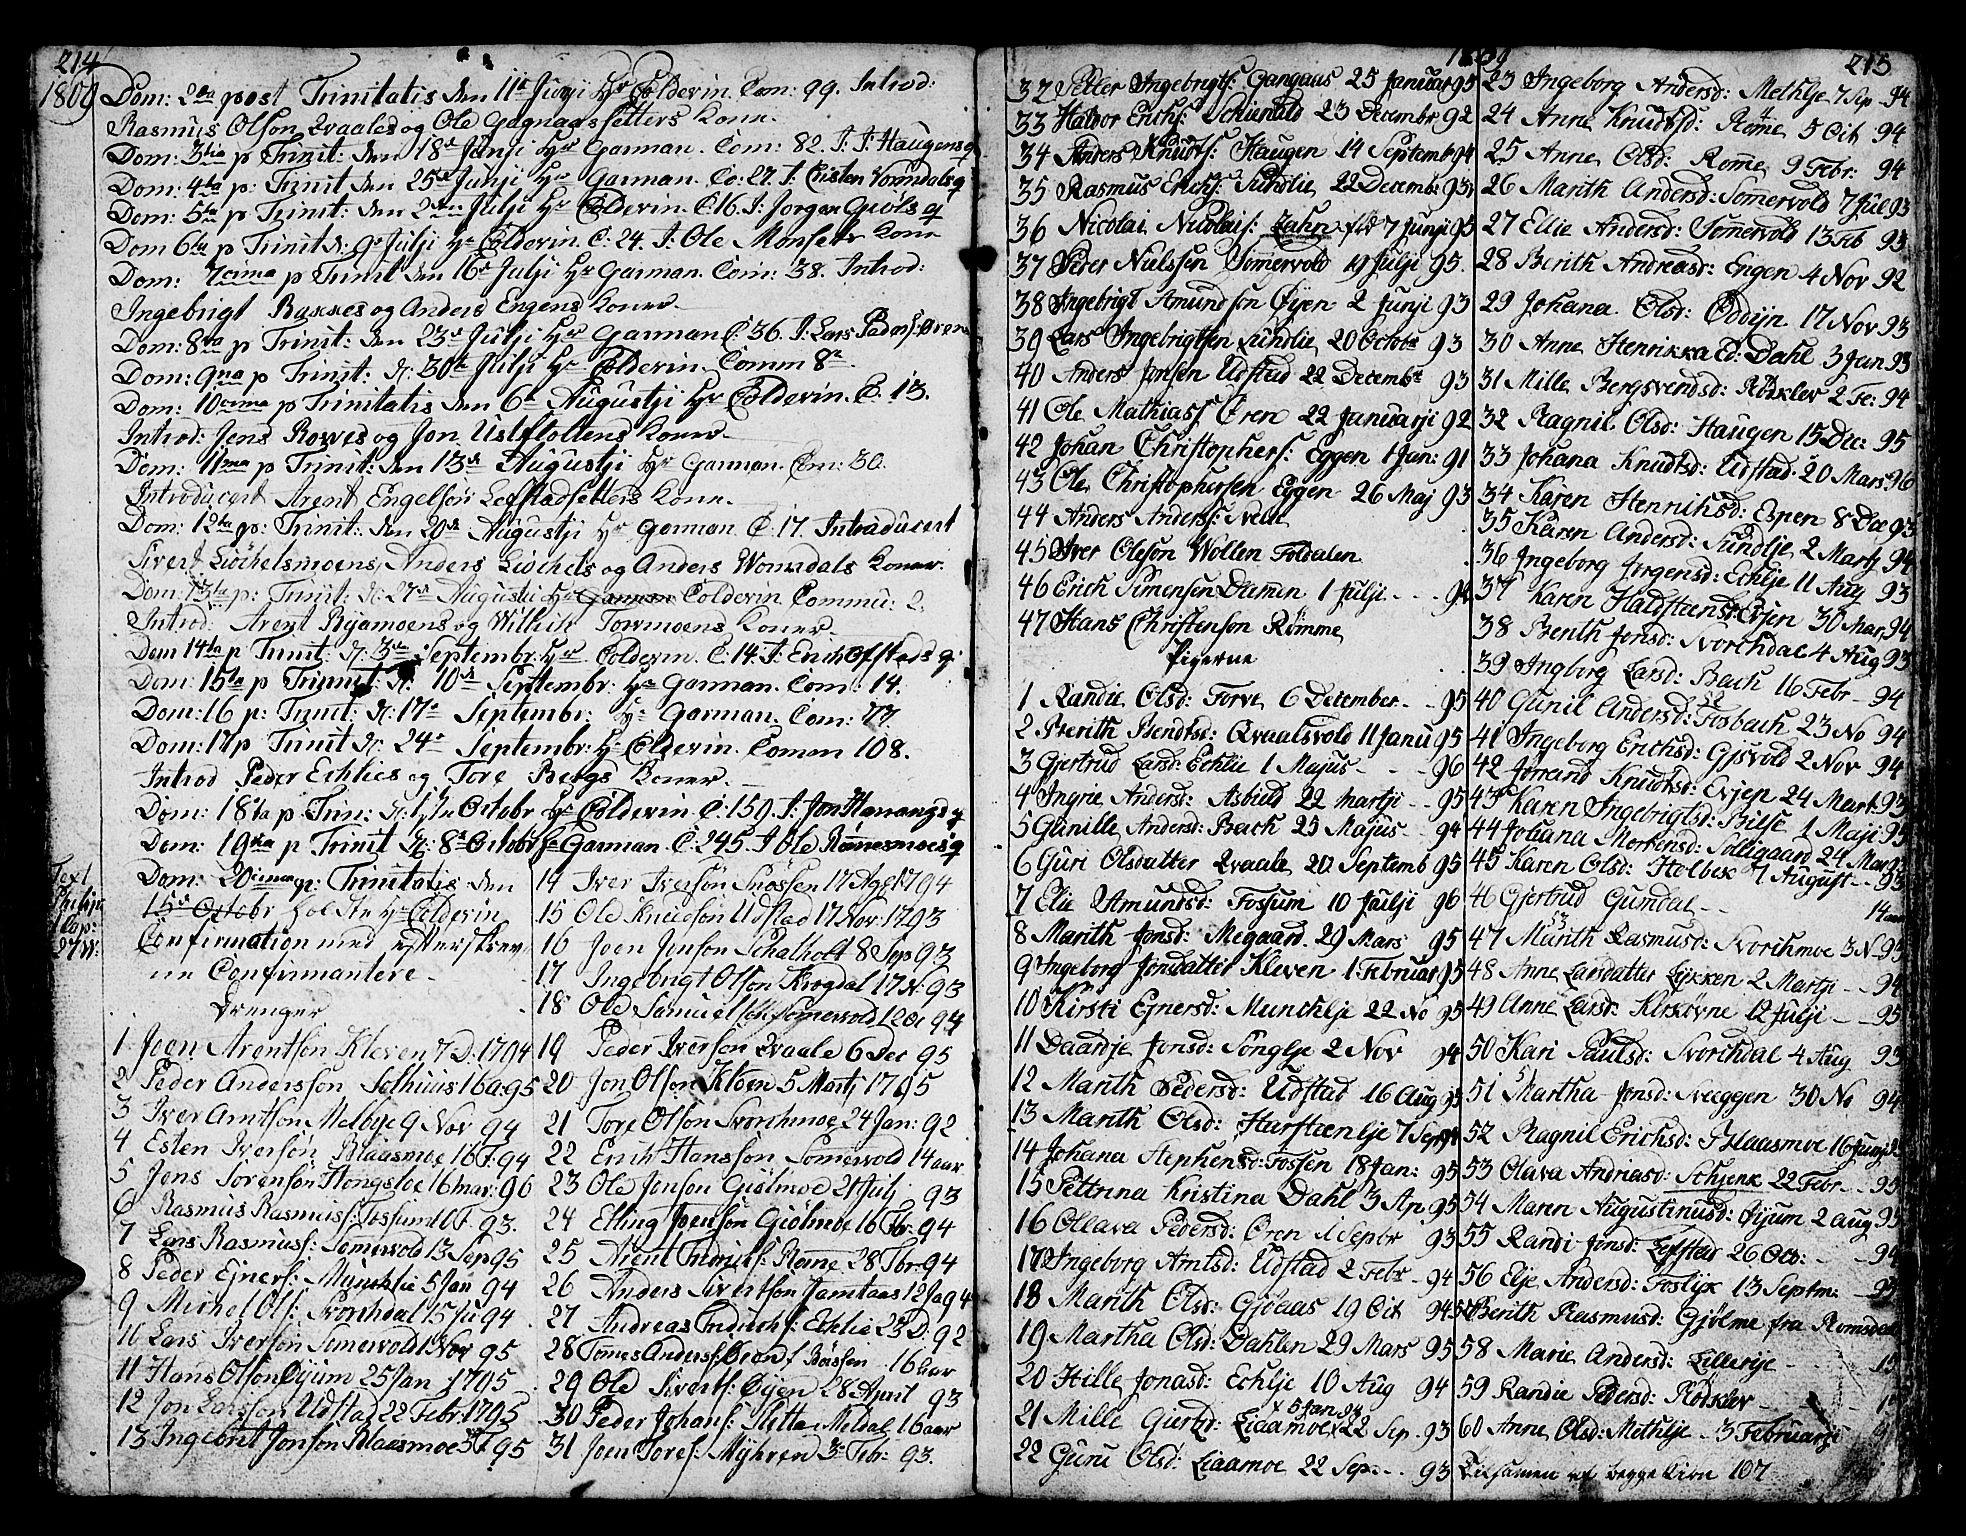 214
1809
Dom: 2da post Trinitatis den 11te Junji Hr Colderin. Com: 99. Introd:
Rasmus Olson Qvaales og Ole Gagnaassetters Kone.
Dom: 3tia p Trinit: den 18de Junji Hr Garman. Com: 82. I: J: Haugens q
Dom: 4ta p: Trinit den 25de Junji Hr Garman. Co: 27. I: Cristen Vormdals q
Dom: 5ta p Trinit: den 2den Julji Hr Colderin. C. 16. I: Jorgen Giøls q
Dom 6ta p Trinit d: 9de Julji Hr Colderin. C: 24. I: Ole Monsets Kone
Dom: 7cima p Trinit den 16de Julji Hr Garman. Com: 38. Introd:
Ingebrigt Bakkes og Anders Engens Koner.
Dom: 8va p Trinit: den 23de Julji Hr Garman C: 36. I: Lars Peders: Øren
Dom: 9na p Trinit: d: 30te Julji Hr Colderin. Comm 8.
Dom: 10cima p Trinitatis den 6te Augustji Hr Colderin. C. 13.
Introd: Jens Rowes og Jon Ustistoltens Koner.
Dom: 11ma p Trinit: den 13de Augustji Hr Garman. Com: 30.
Introducert Arent Engelsøn Lefstadsetters Kone.
Dom: 12ta p: Trinit: den 20de Augustji Hr Garman C: 17. Introducert
Sivert Liøkelsmoens, Anders Liøkels og Anders Wormdals Koner.
Dom: 13tia p: Trinit: d: 27de Augusti Hr Garman Colderin. Commu: 2.
Introd: Arent Ryamoens og Willich Tormoens Koner.
Dom 14ta p Trinit: d: 3die Septembr: Hr Colderin. C: 14. I: Erich Ofstads q:
Dom: 15ta p Trinnit d: 10de Septembr: Hr Garman. Com: 14.
Dom: 16 p: Trinit: d: 17de Septembr: Hr Garman. Com: 77.
Dom: 17 p Trinit d: 24de Septembr: Hr Colderin. Comm 108.
Introd Peder Echlies og Tore Bergs Koner.
Dom: 18va p Trin: d: 1ste Octobr Hr Colderin C: 159. I: Jon Hovangs q
Dom: 19na p Trinit d: 8de Octobr Hr Garman. C. 245. I Ole Rømmesmoes q
Text
Philip:
1 Cap:
27 V:
Dom: 20cima p: Trinitatis den
15de Octobr holdte Hr Colderin
Confirmation med efterskrev
ne Confirmantere
Drenger
1 Joen Arentson Kleven 7 D: 1794
2 Peder Andersson Solhuus 16 a: 95
3 Iver Arntson Melbye 9 Nov 94
4 Esten Iversøn Blaasmoe 16 F: 94
5 Jens Sørensøn Hongsloe 16 Mar: 96
6 Rasmus Rasmus: Fossum 10 F. 93.
7 Lars Rasmuss: Somervold 13 Sep 95
8 Peder Ejners: Munchlie 5 Jan 94
9 Michel Ols: Svorchdal 15 Ju 94
10 Lars Iversøn Somervold 1 Nov 95
11 Hans Olson Øyum 25 Jan 1795
12 Jon Larsson Udstad 22 Febr: 1795
13 Ingebret Jonson Blaasmoe 3 F. 95
14 Iver Iversøn Snossen 17 Ag 1794
15 Old Knudsøn Udstad 17 Nov: 1793
16 Joen Jonson Schalholt 8 Sep 93
17 Ingebrigt Olson Krogdal 17 N: 93
18 Old Samuelson Somervold 1 Dec 94
19 Peder Iversøn Qvaale 6 Dec 95
20 Jon Olson Kleen 5 Martj 1795
21 Tore Olsøn Svorchmoe 24 Jan: 92
22 Erich Hanssøn Somervold 14 aar
23 Old Jonson Giølmoe 21 Julj 93
24 Elling Joensøn Giølmoe 16 Fbr: 94
25 Arent Frerichs: Rømme 28 Fbr: 94
26 Anders Sivertsøn Jamtaas 12 Ja 94
27 Andreas Fridrich: Echlie 23 D: 92
28 Tomes Anders: Brøns Bøssen 16 aar
29 Old Siverts: Øyen 28 April 93
30 Peder Johans: Slitta Meldal 16 aar
31 Joen Tores: Myhren 3 Febr: 93.
1809
215
32 Petter Ingebrigts: Gangaas 25 Januar 95
33 Haldor Erichs: Schienald 23 Decembr 92
34 Anders Knudts: Haugen 14 Septemb 94
35 Rasmus Erichs: Sundlie 22 Decemb: 93
36 Nicolai Nicolais: Zahn 7 Junji 95
37 Peder Nielssen Somervold 19 Julji 95.
38 Ingebrigt Amundson Øyen 2 Junji 93
39 Lars Ingebrigtsen Sundlie 20 Octobr 93
40 Anders Jonsen Udstad 22 Decembr 93
41 Ole Mathiass Øren 22 Januarji 92
42 Johan Christophers: Eggen 1 Jun: 91
43 Ole Christophersen Eggen 26 Maj 93
44 Anders Anders: Nede
45 Iver Oleson Wollen Foldalen
46 Erich Simensen Dlemen 1 Julji 94
47 Hans Christenson Rømme
Pigerne
1 Randie Olsd: Forve 6 December 95
2 Berith Bendtsd: Qvaalsvold 11 Janu 95
3 Gjertrud Larsd: Echlie 1 Majus 96
4 Ingrie Andersd: Asbiel 22 Martji 95
5 Gunille Andersd: Bach 25 Majus 94
6 Guri Olsdatter Qvaale 20 Septemb 95
7 Elie Amundsd: Fossum 10 Julji 96
8 Marith Jonsd: Megaard. 29 Mars 95
9 Ingeborg Jonsdatter Kleven 1 Februar 95
10 Kirsti Ejnersd: Munchlje 22 No 95
11 Daardje Jonsd: Songlje 2 Nov 94
12 Marith Pedersd: Udstad 16 Aug 95
13 Marith Olsd: Hurstenlje 7 Sep 94
14 Johana Stephensd: Fossen 18 Jan: 95
15 Pettrina Kristina Dahl 3 Ap 95
16 Ollava Pedersd: Øren 1 Sepbr 93
17 Ingeborg Arntsd: Udstad 2 Febr 94
18 Marith Olsd: Gjøaas 19 Oct 94
19 Martha Olsd: Dahlen 29 Mars 95
20 Hille Jonasd: Echlje 10 Aug 94
x 5 Jan 94
21 Mille Gjertsd: Liaamoe x 22 Sep 93
22 Guru Olsd: Liaamoe 22 Sep: 93
23 Ingeborg Andersd: Methlje 7 Sep 94
24 Anne Knudtsd: Rømme 5 Oct 94
25 Anne Olsd: Romme 9 Febr: 94
26 Marith Andersd: Sommervold 7 Jul 93
27 Ellie Andersd: Somervold 13 Feb 93
28 Berith Andreasd: Engen 4 Nov 92
29 Johana Olsd: Oddyn 17 Nov 93
30 Anne Henrikka Ed: Dahl 3 Jan 93
31 Mille Bergsvendsd: Rødklev 2 Fe: 94
32 Ragnil Olsd: Haugen 15 Dec: 95
33 Johana Knudtsd: Udstad 20 Mars 96
34 Karen Henrichsd: Espen 8 Dec 93
35 Karen Andersd: Sundlje 2 Martj 94
36 Ingeborg Jørgensd: Echlje 11 Aug 93
37 Karen Haldsteensd: Evjen 30 Mar. 94
38 Berith Jonsd: Svorchdal 4 Aug 93
39 Ingborg Larsd: Bach 16 Febr 94
40 Gunil Andersd: Fosbach 23 No 94
41 Ingeborg Erichsd: Gjsvold 2 Nov 94
42 Jorand Knudtsd: Evjen 24 Mart: 93
43 Karen Ingebrigtsd: Bilse 1 Maji 95
44 Johana Mortensd: Solligaard 24 Mar 93
45 Karen Olsd: Holbek 7 August 93
46 Gjertrud Gumdal 14 aar
47 Marith Rasmusd: Svorchmoe 3 N. 93
48 Anne Larsdatter Lykken 2 Martji 94
49 Anne Larsd: Kirskovne 12 Julji 95
50 Kari Paulsd: Svorchdal 4 Aug 93
51 Martha Jonsd: Sveggen 30 No 94
52 Ragnil Erichsd: Blaasmoe 16 Junji
53 Olava Andreasd: Schjenk 22 Febr 95
54 Maren Augustinusd: Øyum 2 aug 95
55 Randi Jonsd: Lefstad 26 Octb: 94
56 Elje Andersd: Foslje 13 Septm: 95
57 Berith Rasmusd: Gjølme fra Romsdal
58 Marie Andersd: Lillerye 15
59 Randie Pedersd: Rødklev
60 Anne Olsd: Methlje 3 Februarji
Tilsamen af begge Kiøn 107